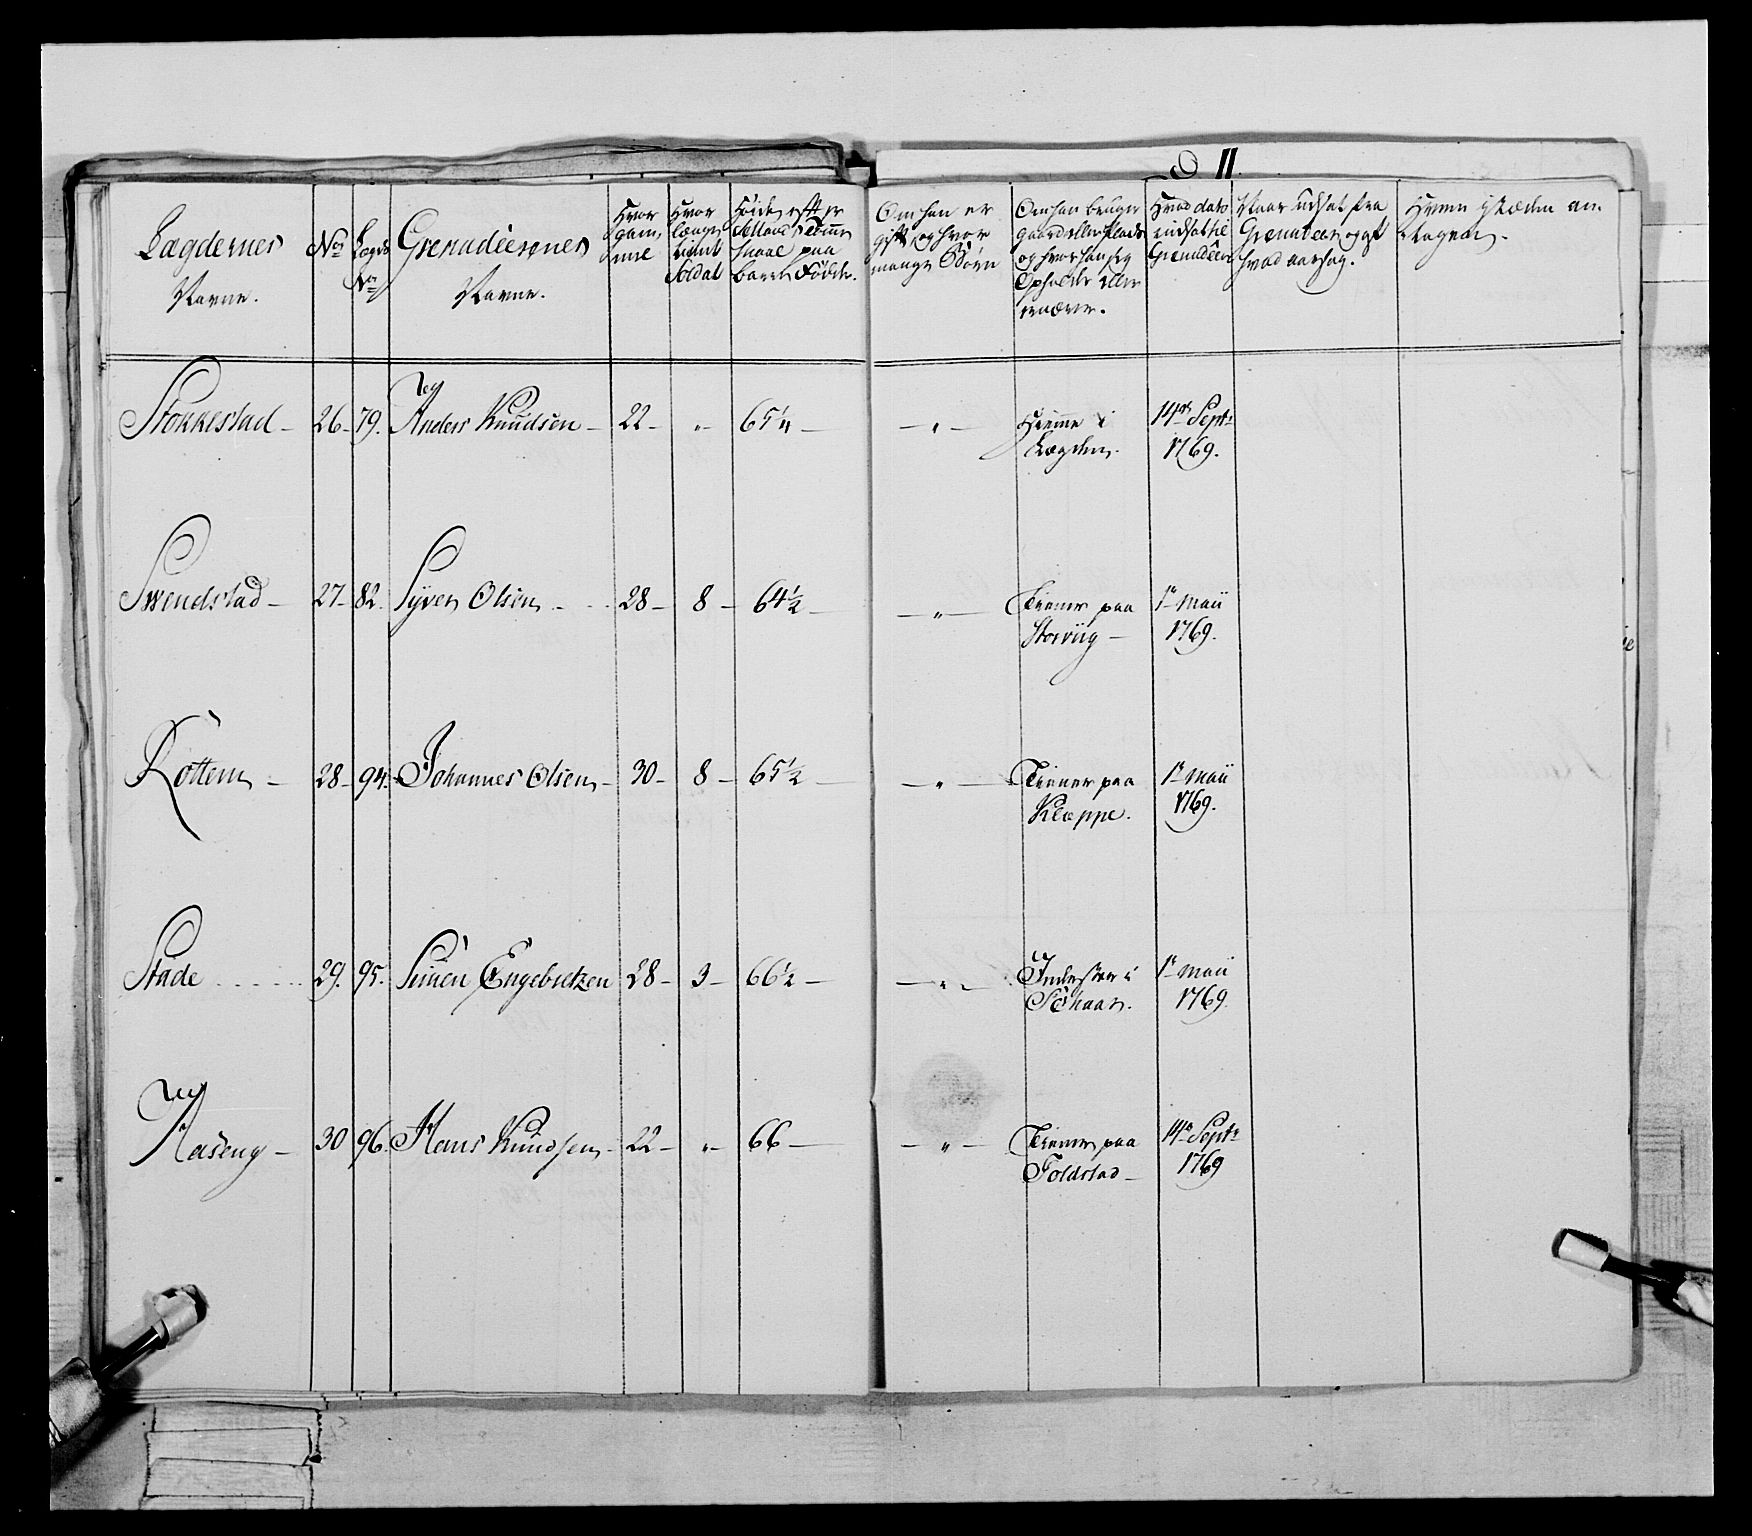 11.
Lægdernes Navne.
No
Lægds No
Grenadeerernes Navne.
Hvor gammel
Hvor længe tient Soldat
Høide efter Sellands Tomme maal paa bare Fødder.
Om han er gift, og hvor mange Børn
Om han bruger gaard eller Plads og hvor han sig Opholder eller ernærer.
Hvad dato indsat til Grenadeer
Naar udsat fra Grenadeer, og af hvad aarsag.
Hvem i stæden antagen.
Stokkestad - 26 - 79. Anders Knudsen - 22 - " - 65 1/4 - " - Hiemme i Lægden. 14de Septr 1769.
Swendstad - 27 - 82. Syver Olsen - 28 - 8 - 64 1/2 - " - Tiener paa Storviig - 1te Maii 1769.
Röttem - 28 - 94. Johannes Olsen - 30 - 8 - 65 1/2 - " - Tiener paa Kleppe. 1te Maii 1769.
Stade 29. 95. Simen Engebretzen 28 - 3 - 66 1/2 - " - Inderster i 1te Maii 1769.
Haseng - 30 96. Hans Knudsen - 22 - " - 66 - " - Tiener paa Foldstad - 14de Septr 1769